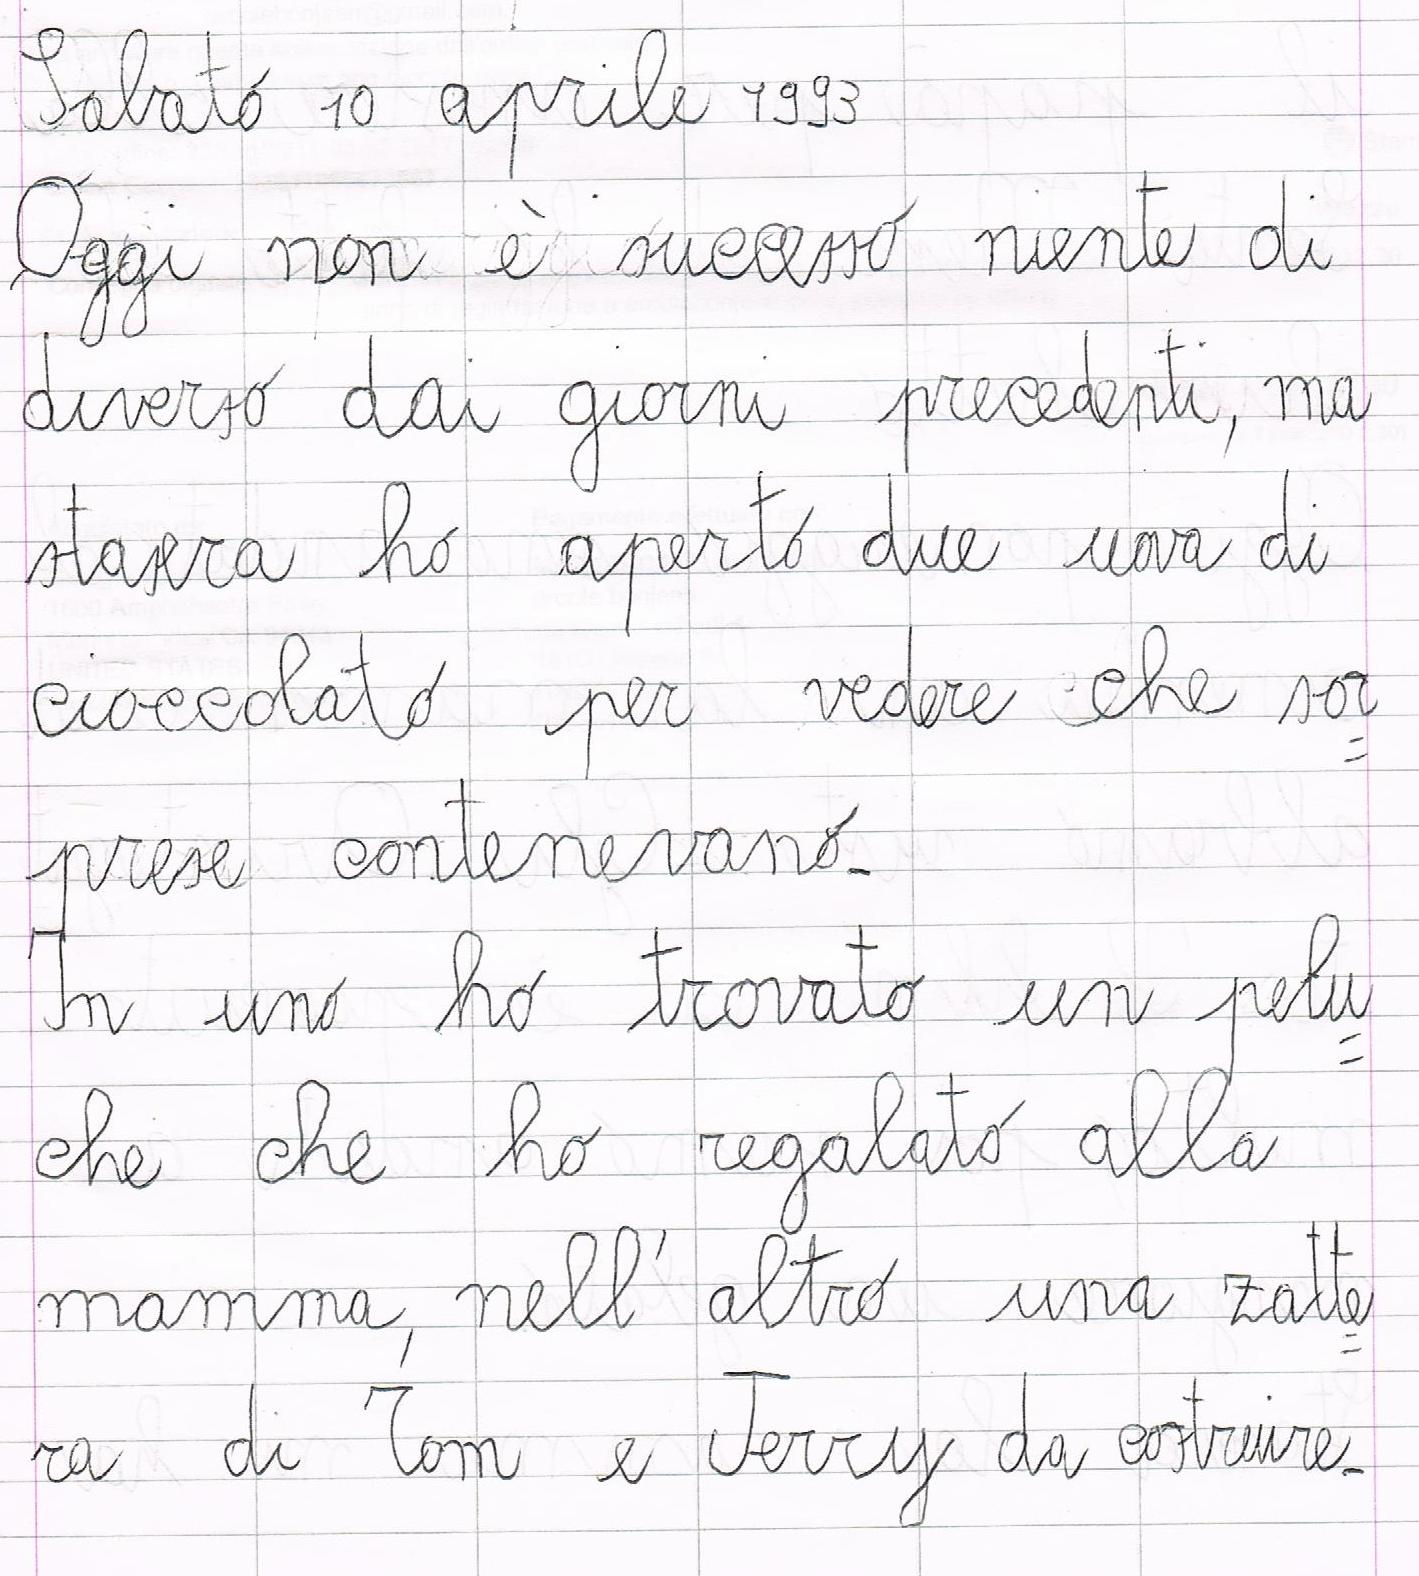 Sabato 10 aprile 1993
Oggi non è successo niente di
diverso dai giorni precedenti, ma
stasera ho aperto due uova di
cioccolato per vedere che sor=
prese contenevano.
In uno ho trovato un pelu=
che che ho regalato alla
mamma, nell'altro una zatte=
ra di Tom e Jerry da costruire.